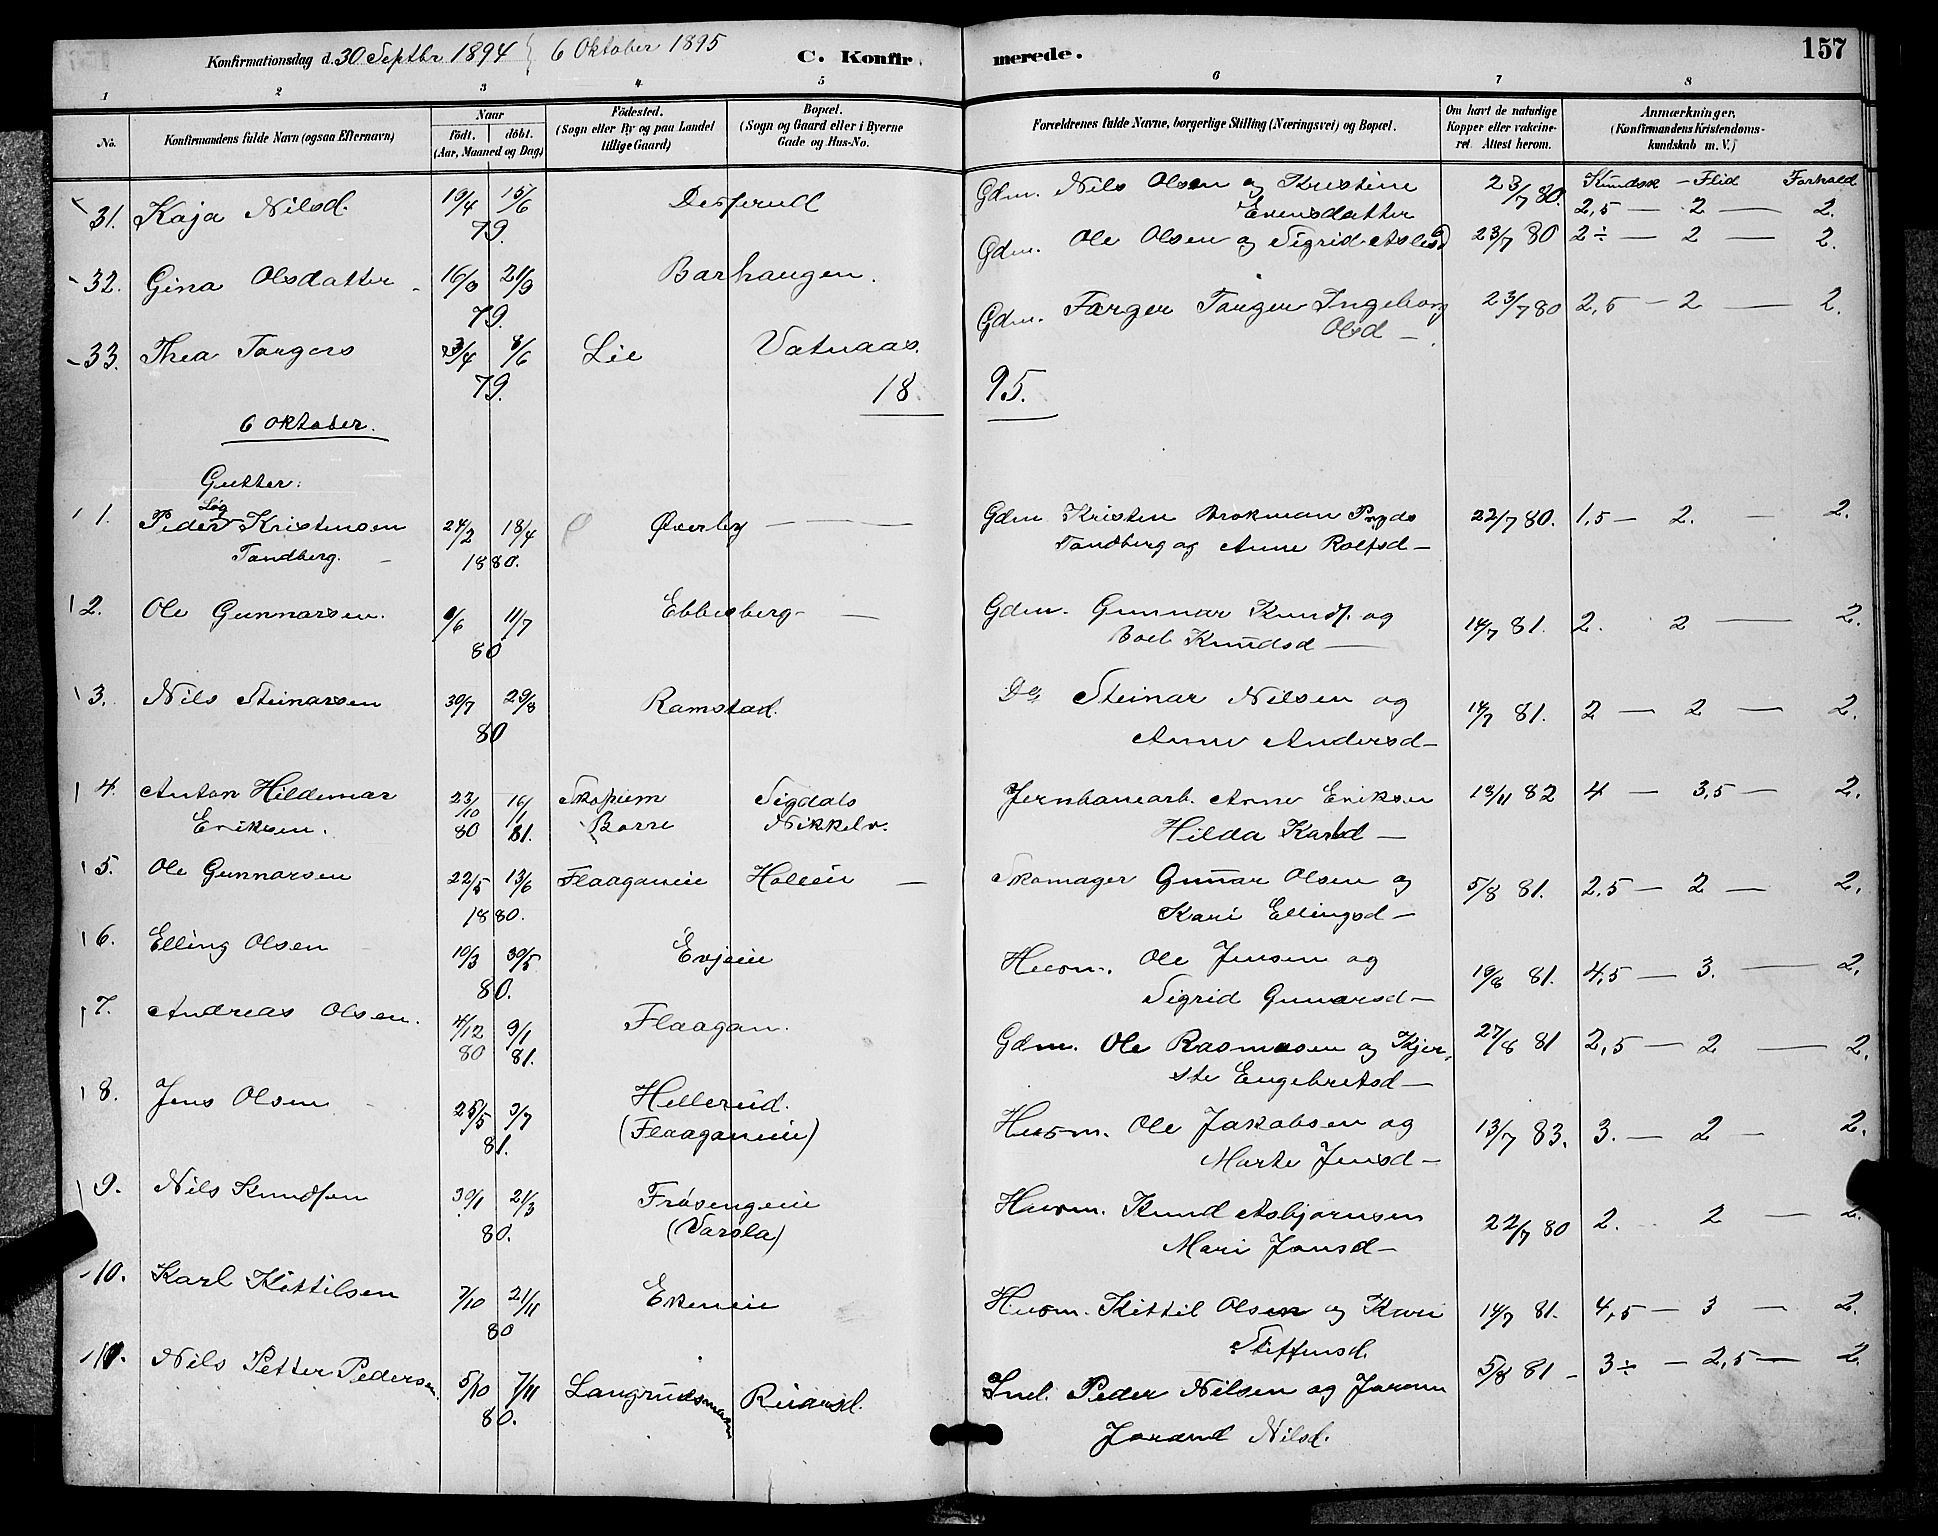 Konfirmationsdag d. 30 Septbr 1894 6 Oktober 1895 C. Konfir
1 2 3 4 5
No.
Konfirmandens fulde Navn (ogsaa Efternavn)
Naar
født. døbt.
(Aar, Maaned og Dag)
Fødested.
(Sogn eller By og paa Landet
tillige Gaard)
Bopæl.
(Sogn og Gaard eller i Byerne
Gade og Hus-No.
31. Kaja Nilsd. 19/4 15/6
79.
32. Gina Olsdatter 21/9 Barhaugen.
79.
33. Thea Torgers 8/6 Lie Vatnaas.
79.
18
6 oktober.
Gutter:
Løg
1. Peder Kristensen 24/2 18/4 Øverby
Tandberg. 1880.
2. Ole Gunnarsen. 11/7 Ebbesberg
80
3. Nils Steinarsen 30/7 29/8 Ramstad.
80
4. Anton Hildemar 23/10 16/1 Sigdals
Eriksen. 80 81. Borre Nikkelv.
5. Ole Gunnarsen 22/5 13/6 Flaaganeie
1880.
6. Elling Olsen 10/3 30/5 Evjeeie
80.
7. Andreas Olsen. 4/12 9/1 Flaagan.
80 81.
8. Jens Olsen 25/5 3/7 Hellerud.
81. (Flaaganeie)
9. Nils Knudsen 30/1 21/3 Frøsengeie
80. (Varsla)
10. Karl Kittilsen 7/10 21/11 Ekeneie
80
Nils Petter Pedersen. 5/10 7/11 Ruud.
80.
merede. 157
6 7 8
Forældrenes fulde Navne, borgerlige Stilling (Næringsvei) og Bopæl.
Om havt de naturlige
Kopper eller vakcine-
ret. Attest herom.
Anmærkninger.
(Konfirmandens Kristendoms-
kundskab m. V.)
Kundsk - Flid Forhold
Gdm. Nils Olsen og Kristine 23/7 80. 2,5 — 2 — 2.
Evensdatter
Gdm. Ole Olsen og Sigrid Aslesd 23/7 80 2÷ — 2 — 2.
Gdm. Torger Ingeborg 23/7 80 2,5 — 2 — 2.
Olsd —
95.
Gdm Kristen Brokman 22/7 80. 1,5 — 2. — 2.
Tandberg og Anne Rolfsd —
Gdm. Gunnar Knuds. og 14/7 81. 2. 2 — 2.
Boel Knudsd —
Do Steinar Nilsen og 14/7 81. 2 — 2 — 2.
Anne Andersd —
Jernbanearb. Arne Eriksen 13/11 82 4 — 3,5 — 2.
Hilda Karlsd —
Skomager Gunnar Olsen og 5/8 81. 2,5 — 2 — 2.
Kari Ellingsd —
Husm. Ole Jensen og 19/8 81. 4,5 — 3. — 2.
Sigrid Gunarsd —
Gdm. Ole Rasmusen og Kjer- 27/8 81 2,5 — 2 — 2.
ste Engebretsd —
Husm. Ole Jakobsen og 13/7 83. 3. — 2 — 2.
Marte Jensd —
Husm. Knud Asbjørnsen 22/7 80 2. 2 — 2.
Mari Jonsd —
Husm. Kittil Olsen og Kari 14/7 81. 4,5 — 3 — 2.
Steffensd.
Ind. Peder Nilsen og 5/8 81 - 3÷ — 2,5 — 2.
Jorand Nilsd.